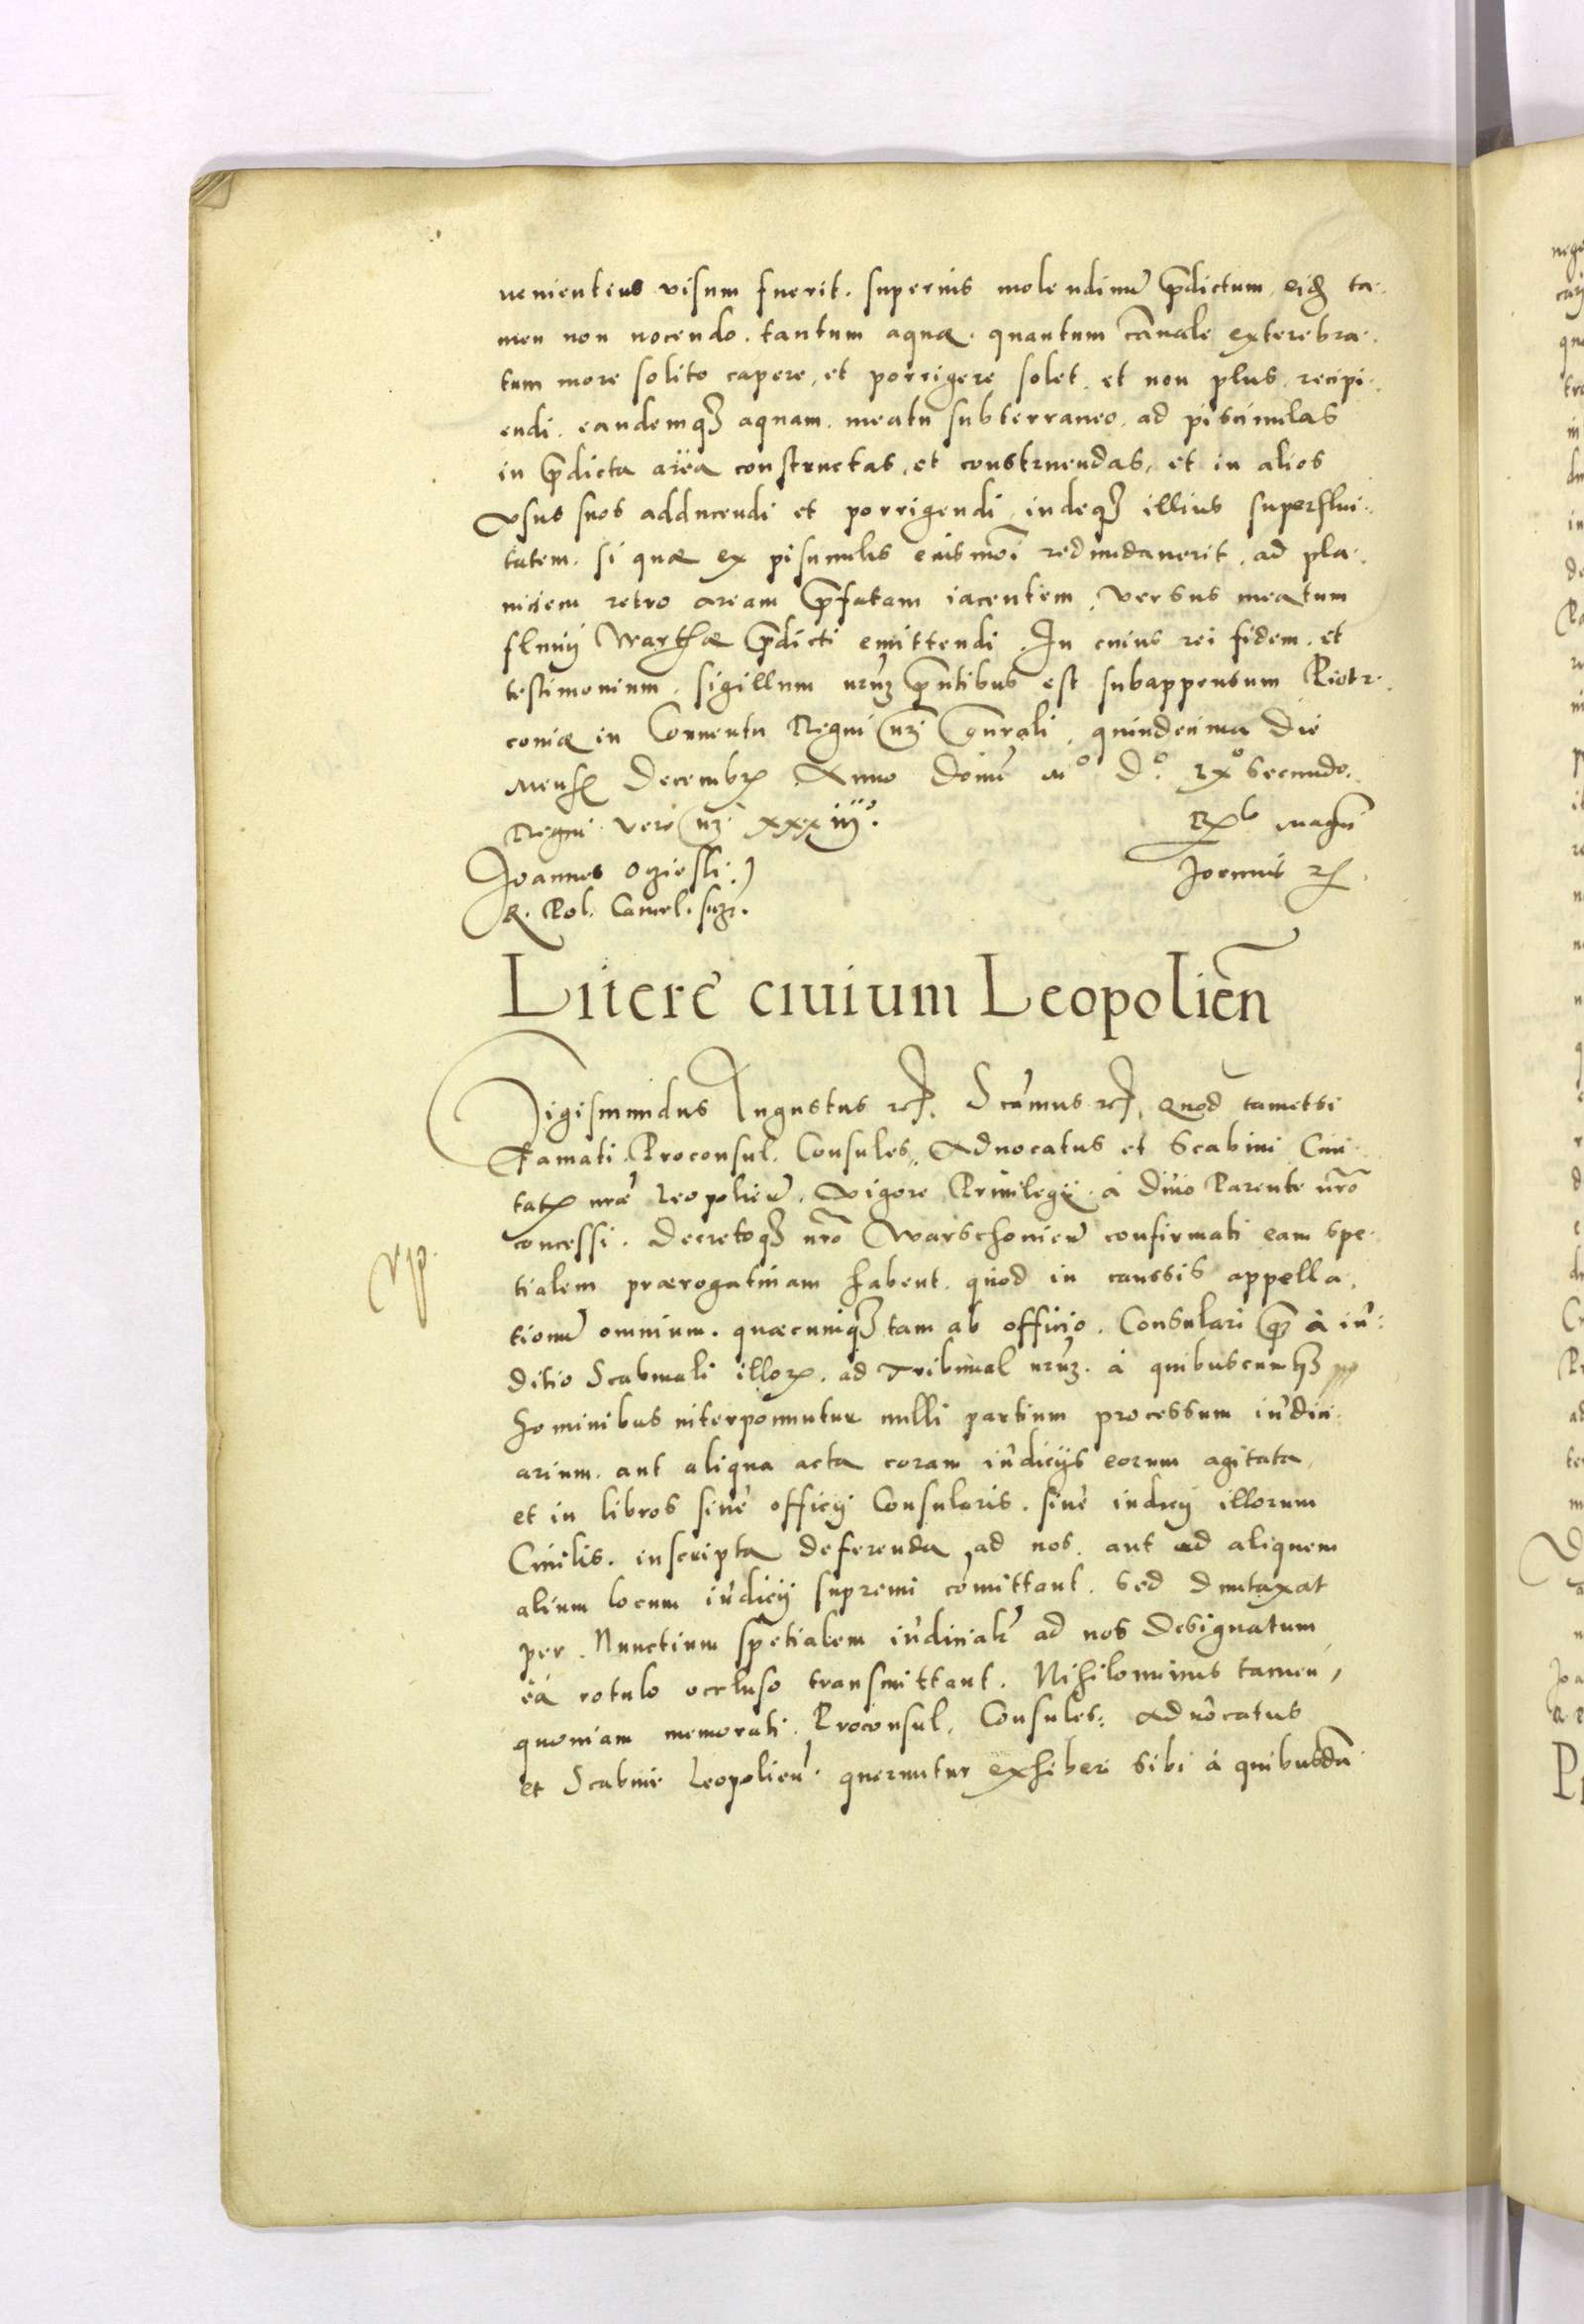 uenientius visum fuerit. superius molendinũ p̃dictum, eidẽ ta-
men non nocendo. tantum aquæ. quantum cãnale exterebra-
tum more solito capere, et porrigere solet, et non plus, recipi-
endi. eandemqȝ aquam. meatu subterraneo, ad piscinulas
in p̃dicta area constructas, et construendas, et in alios
vsus suos adducendi et porrigendi, indeqȝ illius superflui-
tatem. si quæ ex piscinulis eiusmõi redundauerit, ad pla-
niciem retro aream p̃fatam iacentem, versus meatum
fluuij Warthæ p̃dicti emittendi. In cuius rei fidem. et
testimonium. sigillum nr̃uȝ p̃ntibus est subappensum Piotr-
coniæ in Conuentu Regni nr̃i Gñrali, quindecima die
Mens̃ Decembrꝭ Anno Dominĩ Mº Dº Lxº secundo.
Regni vero nr̃i xxxiijº.
Joannes Ocziesski
R. Pol. Cancel. sspt.
Litere ciuium Leopolieñ
Sigismundus Augustus etc. Scãmus etc. Quod tametsi
Famati. Proconsul. Consules, Aduocatus et Scabini Ciui-
tatꝭ nr̃æ Leopolieñ. Vigore Priuilegij. à Diuo Parente nr̃o
concessi. Decretoqȝ nr̃o Warschouieñ confirmati eam spe-
tialem prærogatiuam habent. quod in caussis appella-
tionũ omnium. quæcunqȝ tam ab officio. Consulari q̃ȝ à iu-
ditio Scabinali illorꝭ. ad Tribunal nr̃uȝ. à quibuscunqȝ
hominibus interponuntur nulli partium processum iudici-
arium. aut aliqua acta coram iudicijs eorum agitata,
et in libros siue officij Consularis. siue iudicij illorum
Ciuilis. inscripta deferenda, ad nos. aut ad aliquem
alium locum iudicij supremi cõmittant. sed duntaxat
per. Nunctium spẽtialem iudicialẽ ad nos designatum
ea rotulo occluso transmittant. Nihilominus tamen,
quoniam memorati. Proconsul, Consules: Aduocatus
et Scabini Leopolieñ. queruntur exhiberi sibi à quibusdã